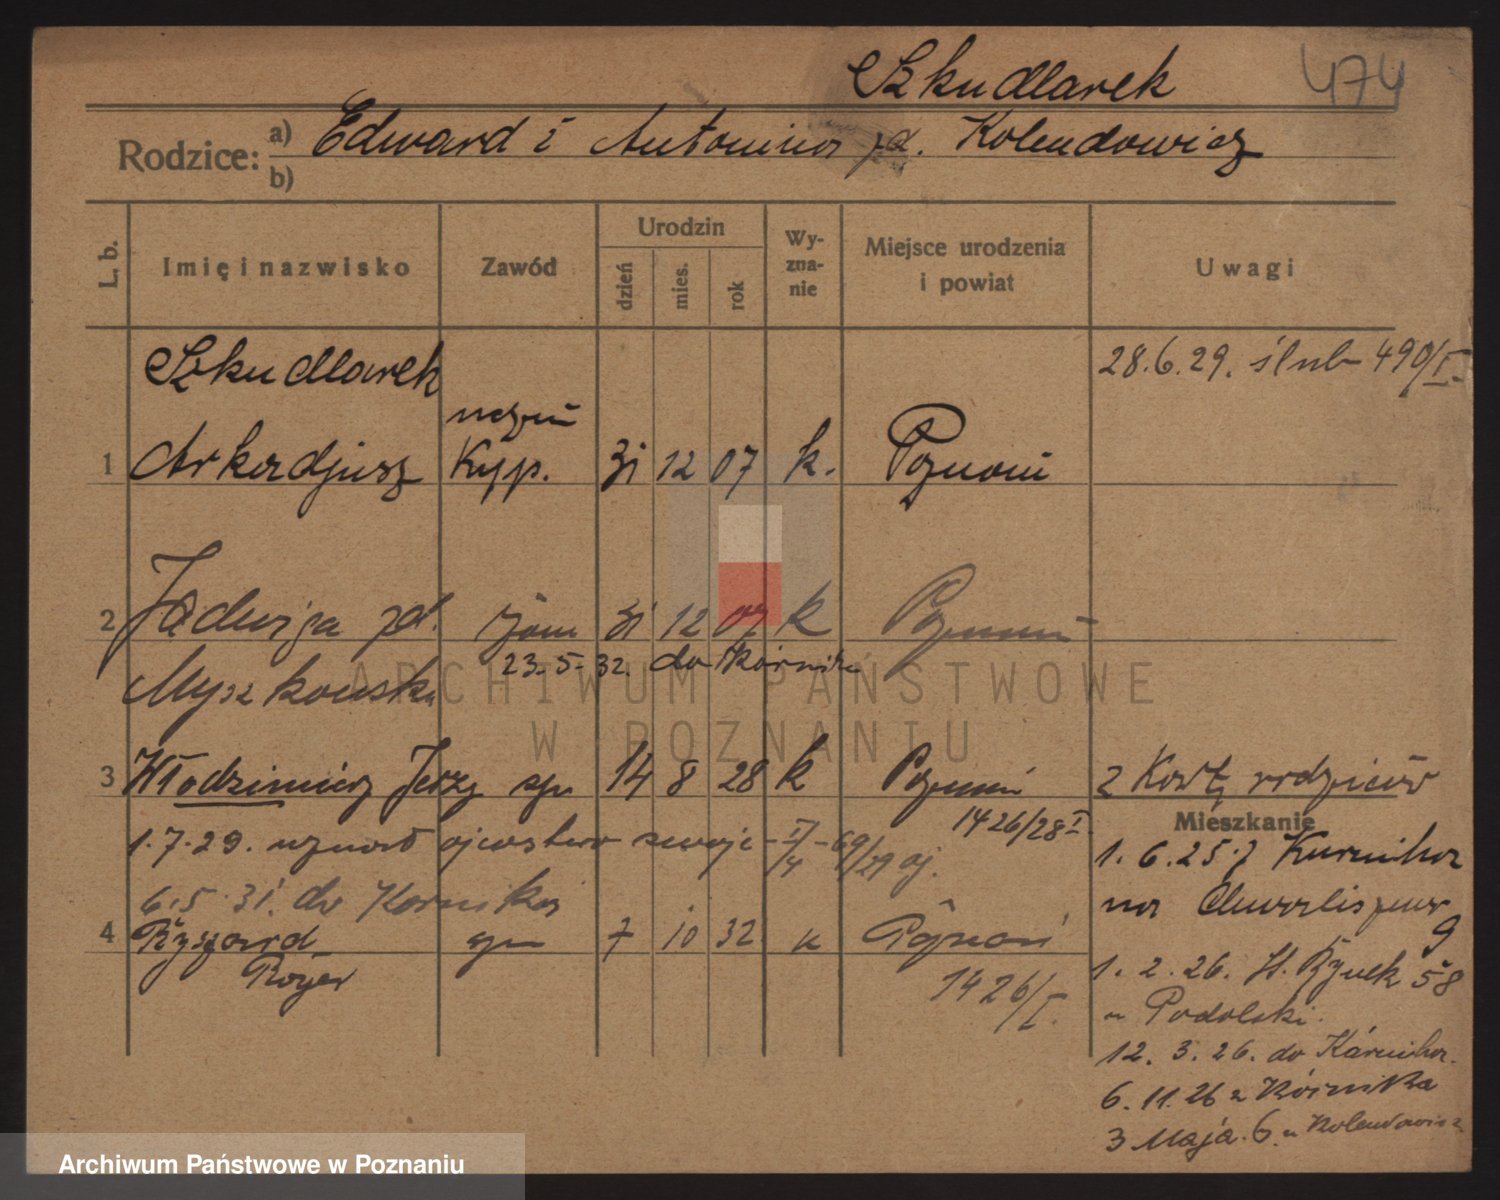 Szkudlarek
474
Rodzice: a) Edward i Antonina zd. Kolendowicz
b)
L. b.
Imię i nazwisko
Zawód
Urodzin
dzień
mies.
rok
Wy-
zna-
nie
Miejsce urodzenia
i powiat
Uwagi
Szkudlarek
28.6.29. ślub 490/I.
uczeń
1 Arkadjusz Kupp. 31 12 07 k. Poznań
2 Jadwiga zd. żona 31 12 07 k Poznań
23.5.32. do Kórnika
Myszkowska
3 Włodzimierz Jerzy syn 14 8 28 k Poznań 2 Kartę rodziców
1426/28 I
1.7.29. uznał ojcostwo swoje
6.5.31. do Kórnika
4 Ryszard syn 7 10 32 k Poznań
Roger
1426/I.
Mieszkanie
1.6.25 z Kurnika
na Chwaliszewo
9
1.2.26. St. Rynek 58
u Podolski.
12.3.26. do Kórnika.
6.11.26 z Kórnika
3 Maja 6 u Kolendowicz
ARCHIWUM PAŃSTWOWE
W POZNANIU
Archiwum Państwowe w Poznaniu